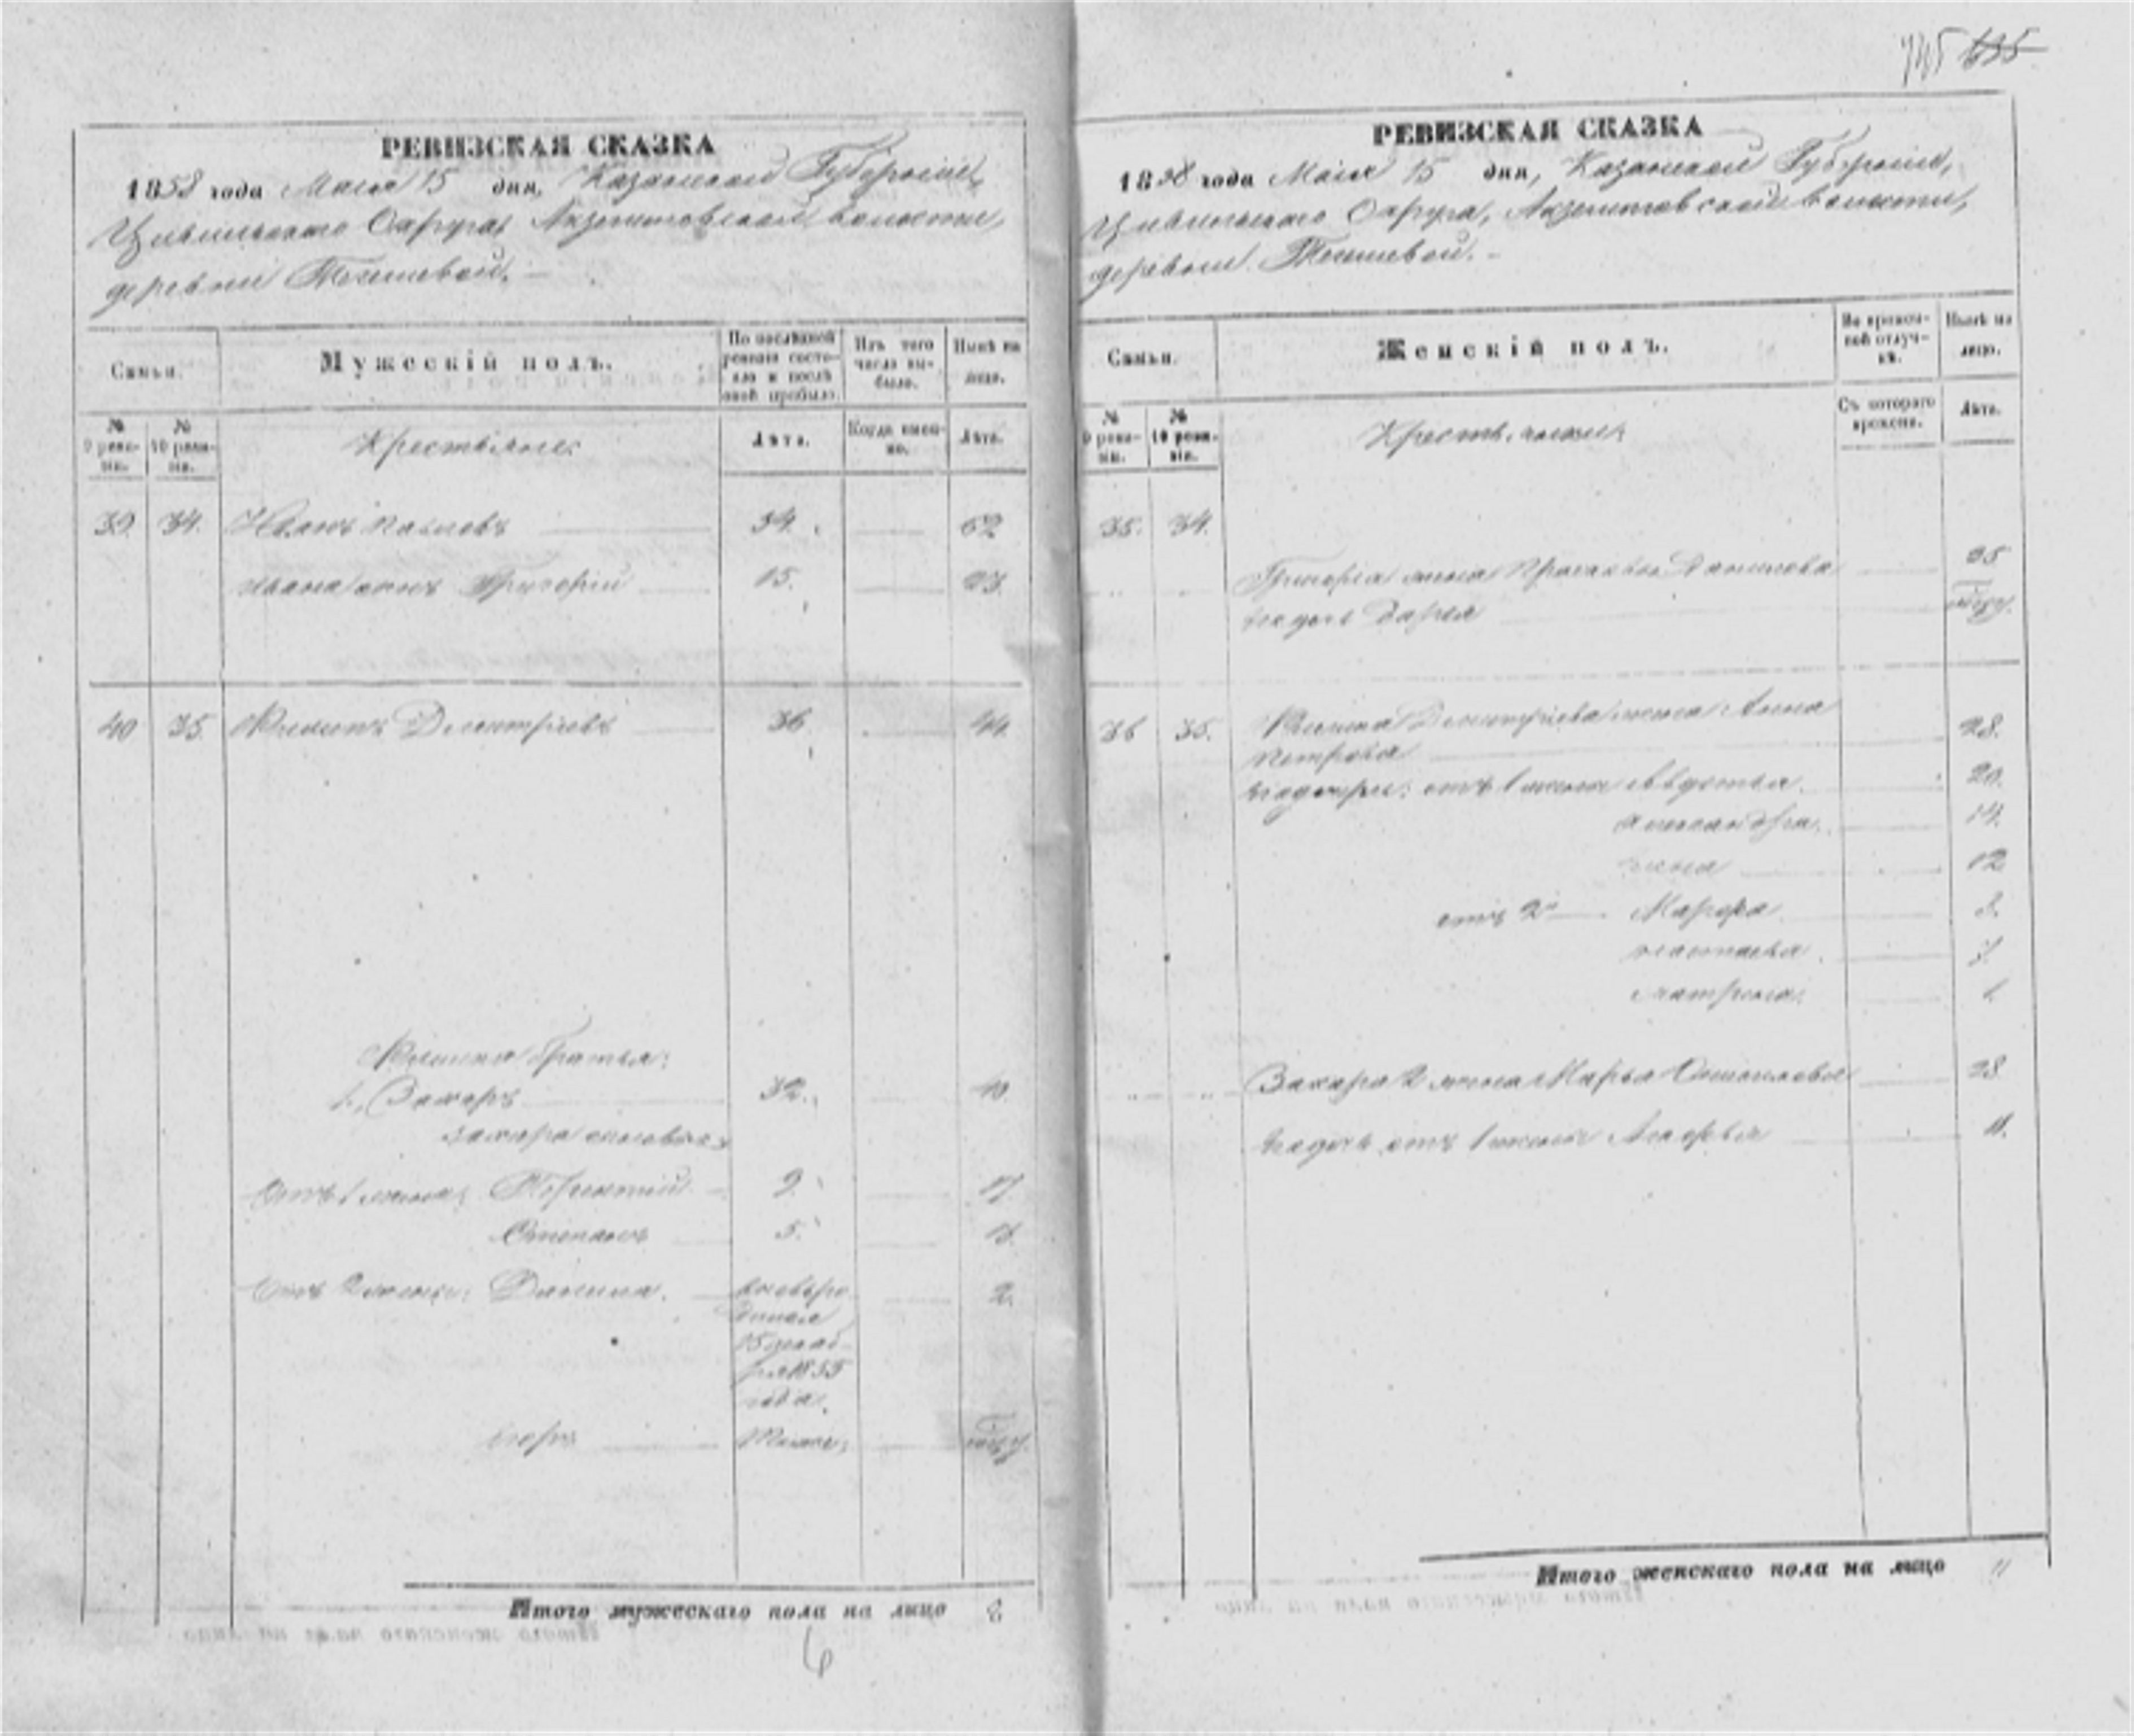 745 635
РЕВИЗСКАЯ СКАЗКА
1858 года Маия 15 дня, Казанской Губернии,
Цивильскаго Округа, Акзегитовской волости,
деревни
Семьи.
Мужескій полъ.
По послѣдней ревизіи состояло и послѣ оной прибыло.
Изъ того числа выбыло.
Нынѣ на лицо.
№ 9 ревизіи.
№ 10 ревизіи.
Крестьяне:
Лѣта.
Когда именно.
Лѣта.
39. 34. Иванъ Павловъ 54. 62
Ивана сынъ Григорій 15. 23.
40 35 Филипъ Дмитріевъ 36 44.
Филипа братья:
1, Захаръ 32. 40.
Захара сыновья
Отъ 1 жены: 9. 17.
Степанъ 5. 13.
Отъ 2 жены: Данила. вновьро 2.
дился
15 декаб-
ря 1855
года.
Егоръ Тоже,
Итого мужескаго пола на лицо 8
6
РЕВИЗСКАЯ СКАЗКА
1858 года Маия 15 дня, Казанской Губерніи,
Цивильскаго Округа, Акзегитовской волости,
деревни
Семьи.
Женскій полъ.
Во временной отлучкѣ.
Нынѣ на лицо.
№ 9 ревизіи.
№ 10 ревизіи.
Крестьянки:
Съ котораго времени.
Лѣта.
35. 34.
Григорья жена Прасковья Данилова 25
его дочь Дарья
36 35. Филипа Дмитріева жена Анна
Петрова 28.
его дочери: отъ 1 жены Авдотья. 20.
Александра. 14.
12
отъ 2й Марфа
Настасья
Матрена.
Захара 2 жена Марья 28
его дочь отъ 1 жены 11.
Итого женскаго пола на лицо 11